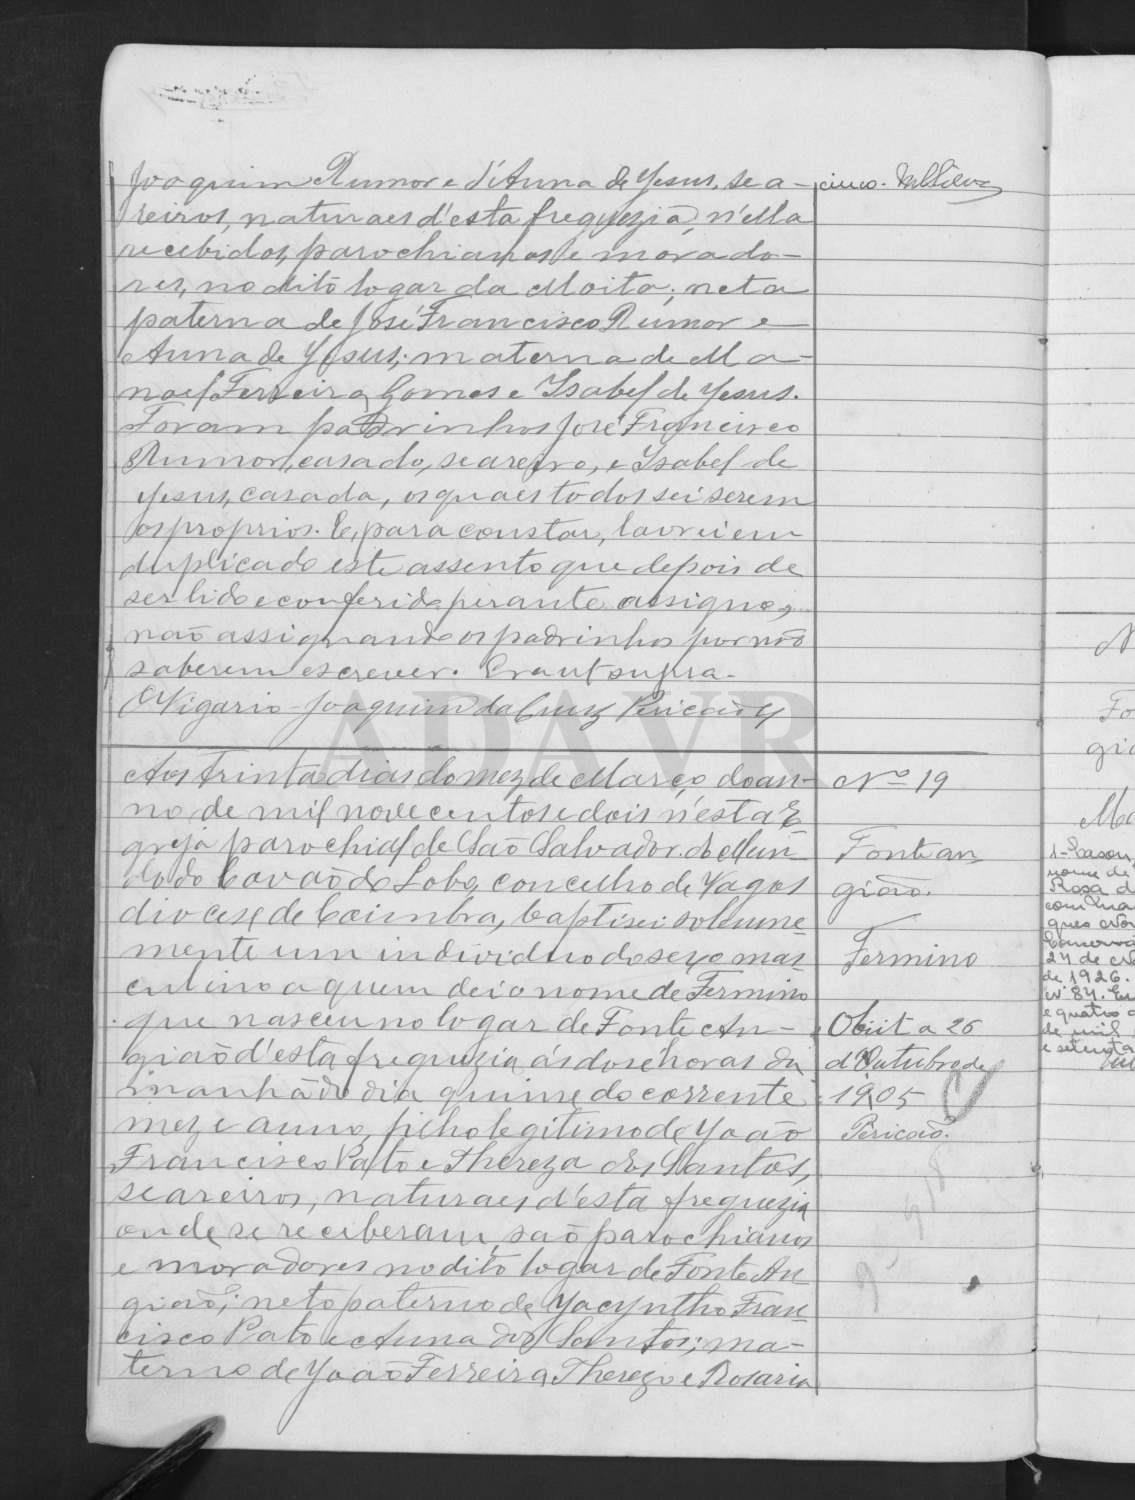 Joaquim Rumor e d'Anna de Jesus, sea-
reiros, naturaes d'esta freguezia, n'ella
recebidos, parochianos e morado-
res, no dito logar da Moita; neta
paterna de José Francisco Rumor e
Anna de Jesus; materna de Ma-
noel Ferreira Gomes e Isabel de Jesus.
Foram padrinhos José Francisco
Rumor, casado, seareiro, e Isabel de
Jesus, casada, os quaes todos sei serem
os proprios. E, para constar, lavrei em
duplicado este assento que depois de
ser lido e conferido perante assigno,
não assignando os padrinhos por não
saberem escrever. Era ut supra.
O Vigario Joaquim da Cruz Pericão
cinco. MSilva
ADAVR
Aos trinta dias do mez de Março do an-
no de mil novecentos e dois n'esta E
greja parochial de São Salvador do Mun
do do Covão do Lobo, concelho de Vagos
diocese de Coimbra, baptisei solemne
mente um individuo do sexo mas
culino a quem dei o nome de Fermino
que nasceu no logar de Fonte An-
gião d'esta freguezia ás dose horas da
manhã do dia quinze do corrente
mez e anno, filho legitimo de João
Francisco Pato e Thereza dos Santos,
seareiros, naturaes d'esta freguezia
onde se receberam, são parochianos
e moradores no dito logar de Fonte An
gião; neto paterno de Jacyntho Fran
cisco Pato e Anna dos Santos; ma-
terno de João Ferreira Thereso e Rosaria
Nº 19
Fontean
gião.
Fermino
Obiit a 26
d'Outubro de
1905
Pericão.
N
Fo
gia
Ma
1-Casou
nome de
Rosa d
com Ma
ques
27 de
de 1926.
nº 84. Em
e quatro d
de mil
e setenta